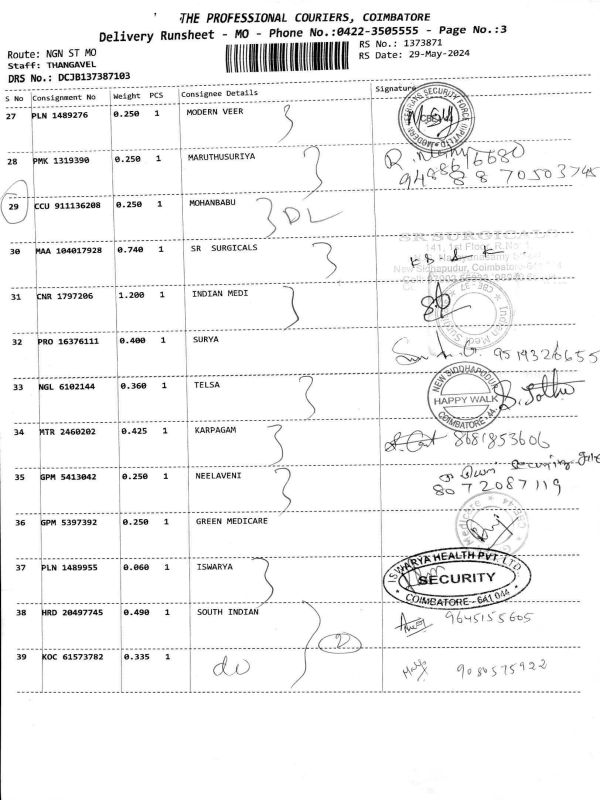 THE PROFESSIONAL COURIERS, COIMBATORE
Delivery Runsheet - MO - Phone No.:0422-3505555 - Page No.:3
Route: NGN ST MO
RS No.: 1373871
Staff: THANGAVEL
RS Date: 29-May-2024
DRS No.: DCJB137387103
S No Consignment No Weight PCS Consignee Details Signature
27 PLN 1489276 0.250 1 MODERN VEER
28 PMK 1319390 0.250 1 MARUTHUSURIYA
29 CCU 911136208 0.250 1 MOHANBABU DL
30 MAA 104017928 0.740 1 SR SURGICALS
SR SURGICALS
141, 1st Floor, R.No. 1
New Sidhapudur, Coimbatore
31 CNR 1797206 1.200 1 INDIAN MEDI
32 PRO 16376111 0.400 1 SURYA 9519326655
33 NGL 6102144 0.360 1 TELSA
NEW SIDDHAPUDUR
HAPPY WALK
COIMBATORE-44
34 MTR 2460202 0.425 1 KARPAGAM 8681853606
35 GPM 5413042 0.250 1 NEELAVENI
8072087119
36 GPM 5397392 0.250 1 GREEN MEDICARE
37 PLN 1489955 0.060 1 ISWARYA
ISWARYA HEALTH PVT. LTD.
SECURITY
COIMBATORE - 641 044
38 HRD 20497745 0.490 1 SOUTH INDIAN 9645155605
2
39 KOC 61573782 0.335 1 do 9080575922